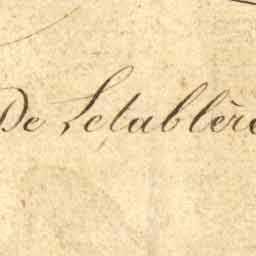 De Letablère